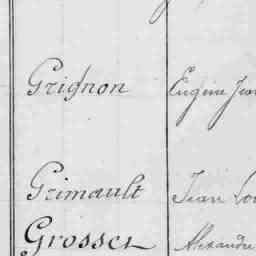 Grignon Eugène Jean
Grimault Jean Lou
Grosset Alexandre